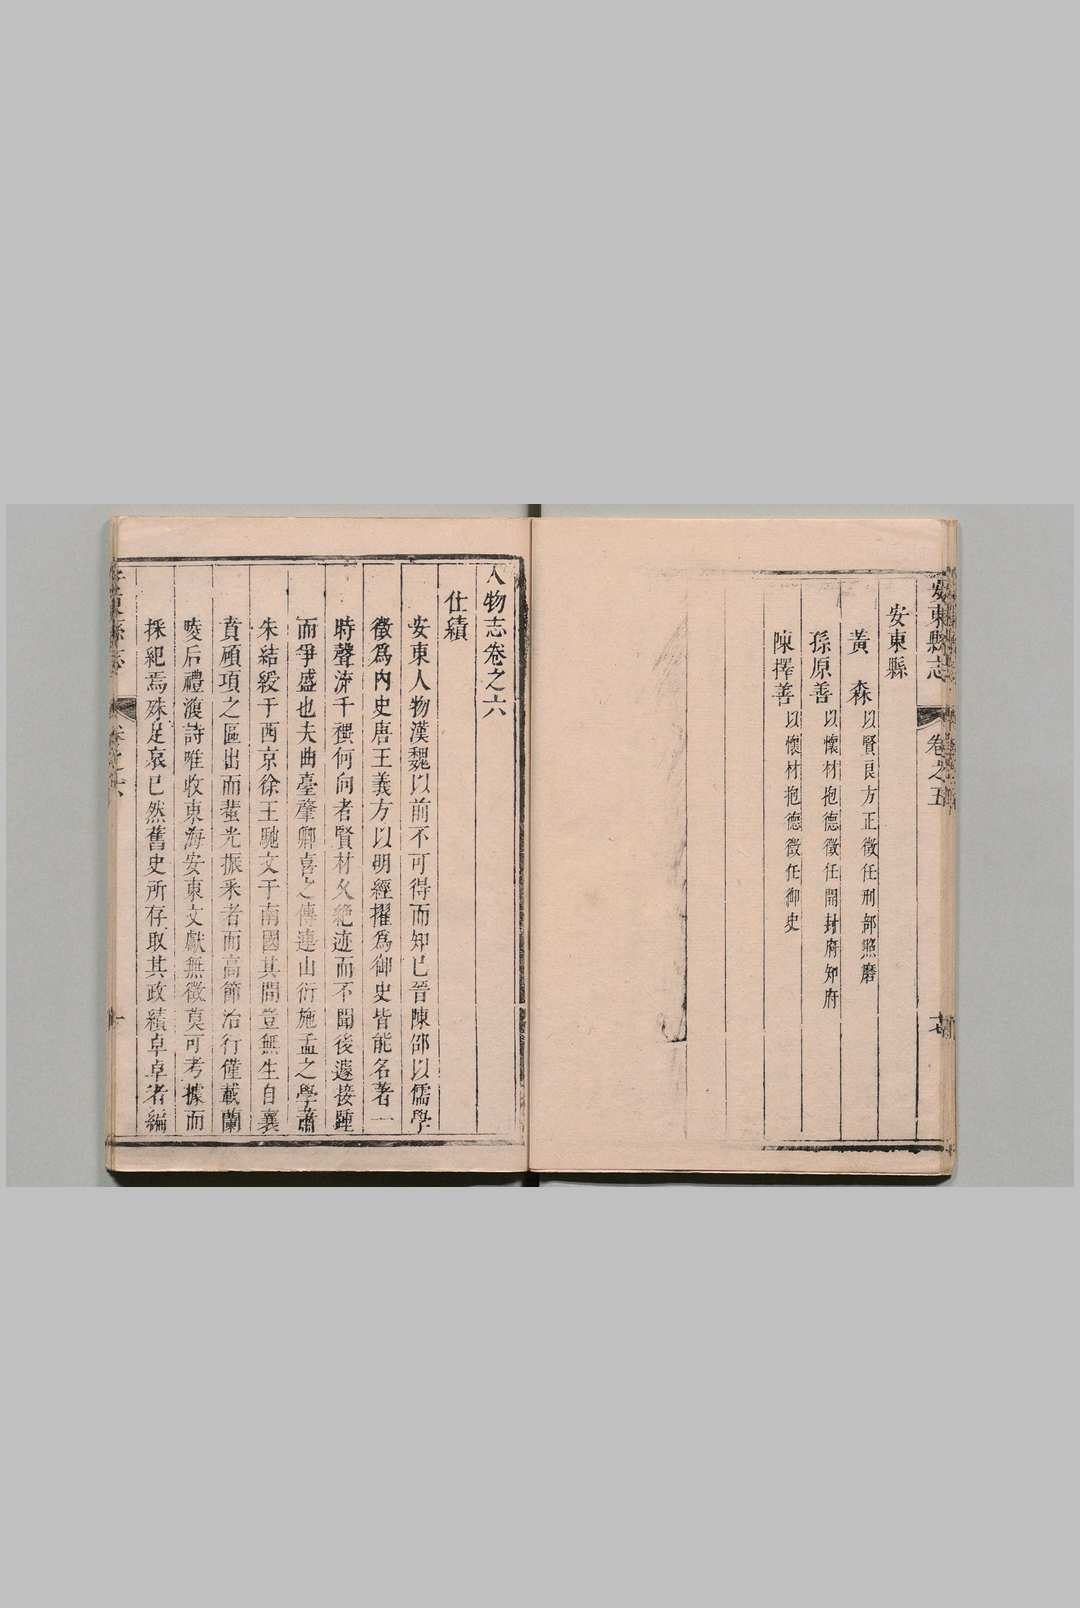 安東縣志 卷之五
安東縣
黃 森 以賢良方正徵任刑部照磨
孫原善 以懷材抱德徵任開封府知府
陳擇善 以懷材抱德徵任御史
人物志卷之六
仕績
安東人物漢魏以前不可得而知已晉陳邵以儒學
徵爲內史唐王義方以明經擢爲御史皆能名著一
時聲流千禩何向者賢材久絶迹而不聞後遽接踵
而爭盛也夫曲臺肇卿喜之傳連山衍施孟之學蕭
朱結綬于西京徐王馳文于南國其間豈無生自襄
賁碩項之區出而蜚光振釆者而高節治行僅載蘭
陵后禮濩詩唯收東海安東文獻無徵莫可考據而
採紀焉殊足哀已然舊史所存取其政績卓卓者編
安東縣志 卷之六 一